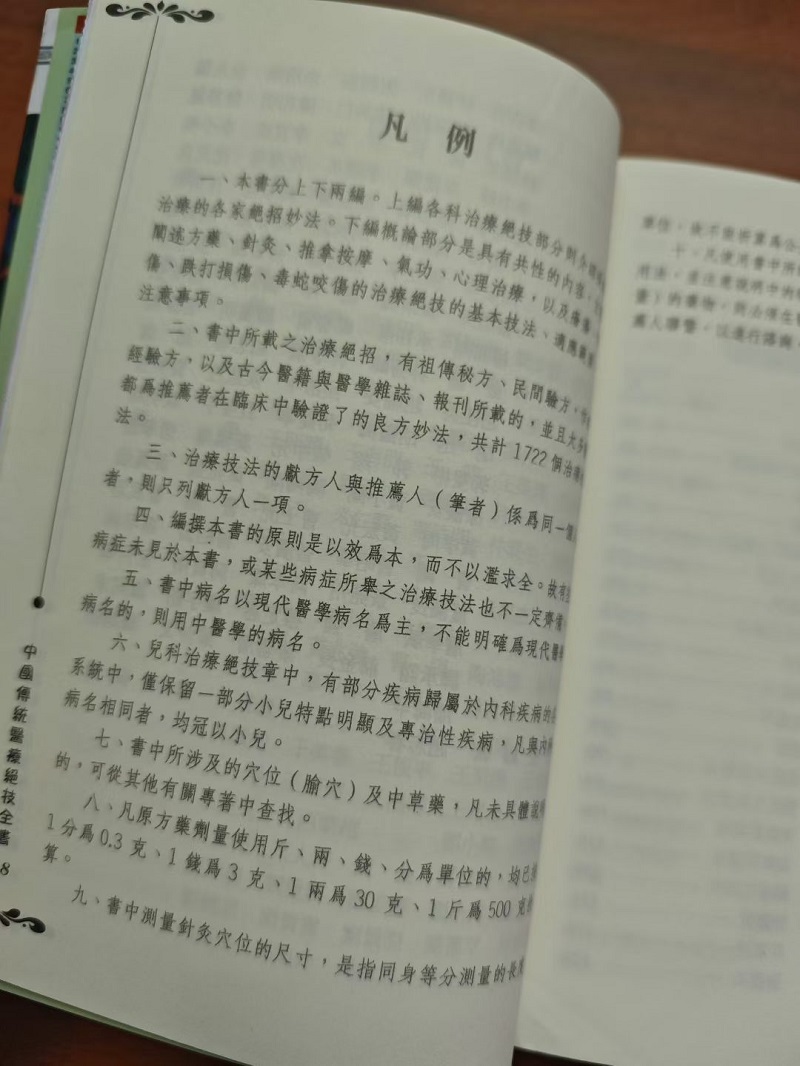 凡例
一、本書分上下兩編。上編各科治療絕技部分則分
治療的各家絕招妙法。下編概論部分是具有共性的內容,
闡述方藥、針灸、推拿按摩、氣功、心理治療,以及
傷、跌打損傷、毒蛇咬傷的治療絕技的基本技法、適應
注意事項。
二、書中所載之治療絕招,有祖傳秘方、民間驗方、
經驗方,以及古今醫籍與醫學雜誌、報刊所載的,並且大
都爲推薦者在臨床中驗證了的良方妙法,共計1722個治療
法。
三、治療技法的獻方人與推薦人(筆者)係爲同一個
者,則只列獻方人一項。
四、編撰本書的原則是以效爲本,而不以濫求全。故有些
病症未見於本書,或某些病症所舉之治療技法也不一定齊備
五、書中病名以現代醫學病名爲主,不能明確爲現代醫學
病名的,則用中醫學的病名。
六、兒科治療絕技章中,有部分疾病歸屬於內科疾病的
系統中,僅保留一部分小兒特點明顯及專治性疾病,凡與內科
病名相同者,均冠以小兒。
七、書中所涉及的穴位(腧穴)及中草藥,凡未具體說明
的,可從其他有關專著中查找。
八、凡原方藥劑量使用斤、兩、錢、分爲單位的,均已
1分爲0.3克、1錢爲3克、1兩爲30克、1斤爲500克
算。
九、書中測量針灸穴位的尺寸,是指同身等分測量的長
中國傳統醫療絕技全書
8
單位,故不能折算爲公
十、凡使用書中所
用法,並注意說明中的
量)的藥物,則必須在
薦人聯繫,以進行諮詢。